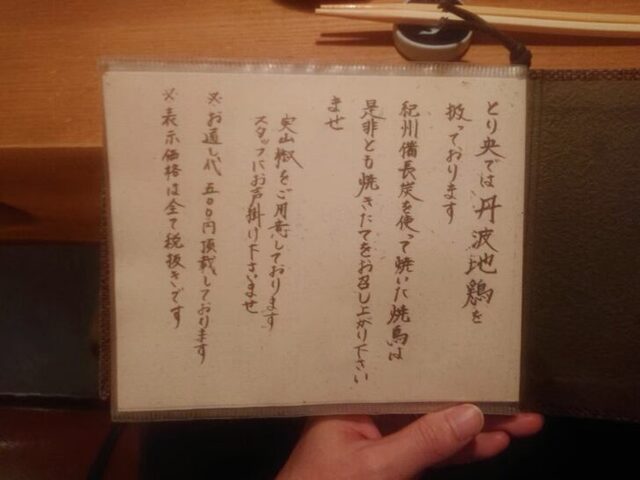 とり央では丹波地鶏を
扱っております
紀州備長炭を使って焼いた焼鳥は
是非とも焼きたてをお召し上がり下さい
ませ
実山椒をご用意しております
スタッフにお声掛け下さいませ
※お通し代 五〇〇円頂戴しております
※表示価格は全て税抜きです